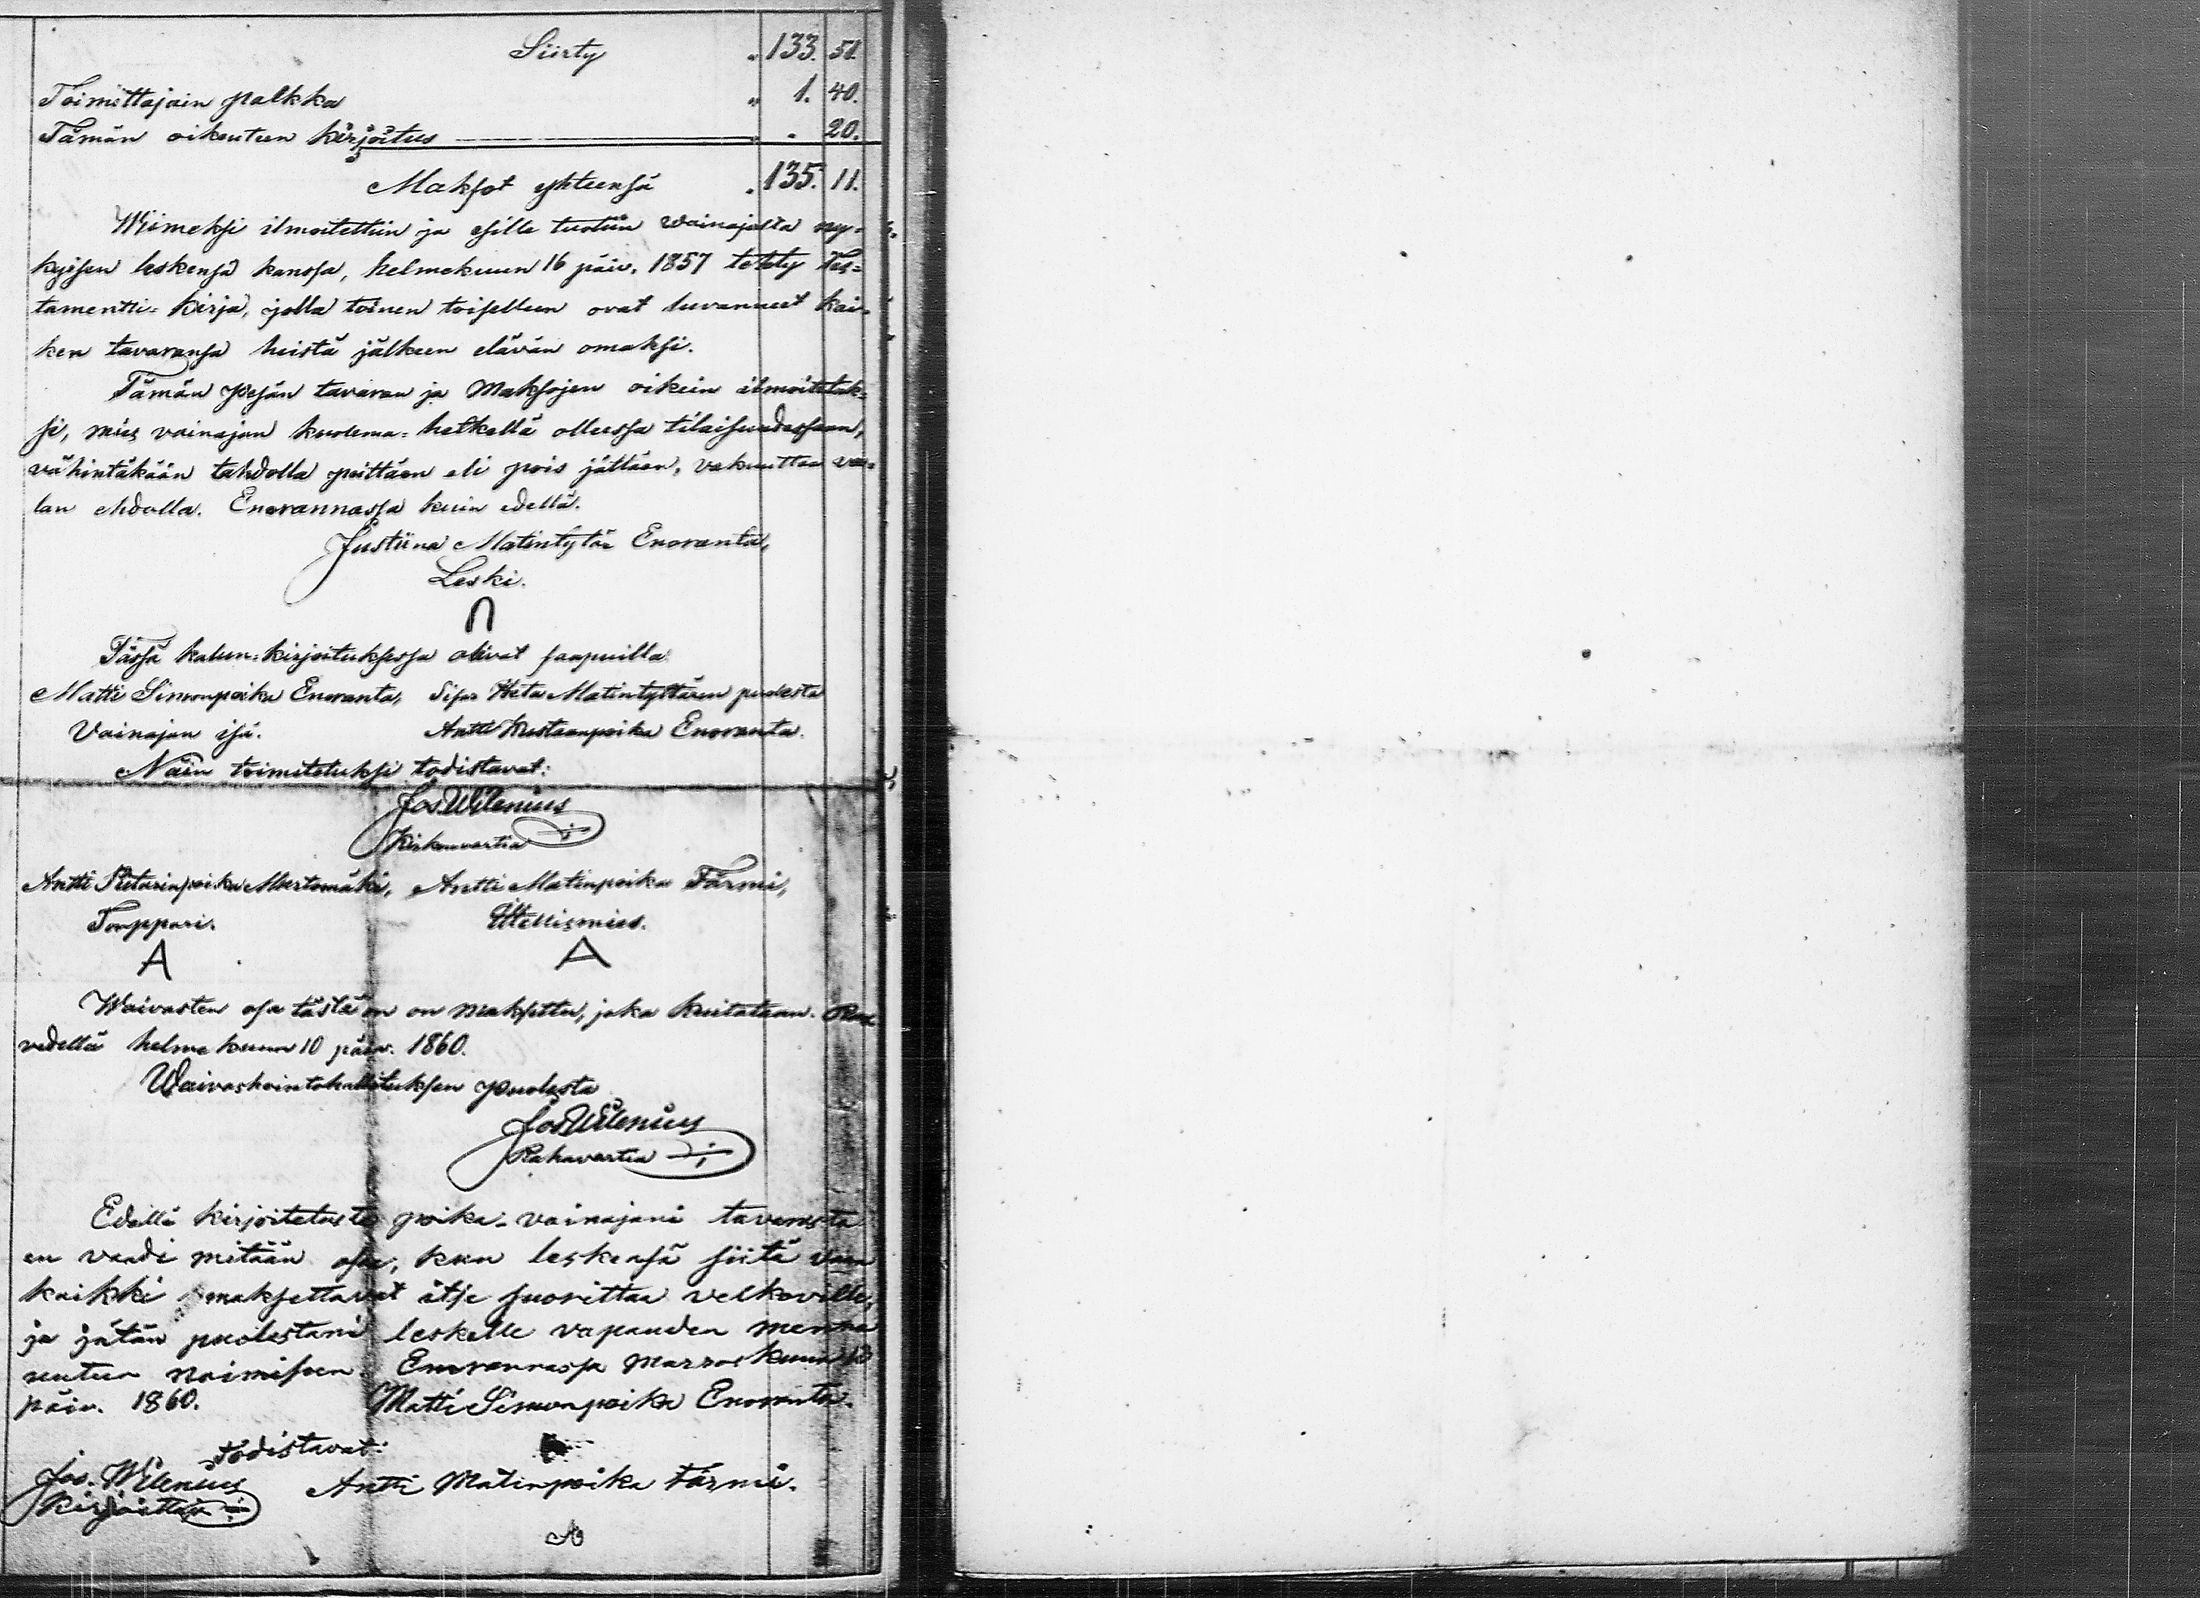 Siirty " 133. 51.
Toimittajain palkka " 1. 40.
Tämän oikeuteen kirjoitus " " 20.
Maksot yhteensä " 135. 11.
Wiimeksi ilmoitettiin ja esille tuotiin vainajalta ny=
kyisen leskensä kanssa, helmekuun 16 päiv. 1857 tehty Tes=
tamentti=kirja, jolla toinen toisellen ovat luvanneet kai=
ken tavaransa heistä jälkeen elävän omaksi.
Tämän pesän tavaran ja maksojen oikein ilmoitetuk=
si, mies vainajan kuolema=hetkellä ollessa tilaisuudessaan,
vähintäkään tahdolla peittäen eli pois jättäen, vakuuttaa va=
lan ehdolla. Enorannassa kuin edellä.
Justiina Matintytär Enoranta,
Leski.
Tässä kalun=kirjoituksessa olivat saapuilla
Matti Simonpoika Enoranta, Sisar Matintyttären puolesta
Vainajan isä. Antti Kustaanpoika Enoranta.
Näin toimitetuksi todistavat:
Jos. Wilenius
Kirkonvartia
Antti Pietarinpoika Murtomäki, Antti Matinpoika Färmi,
Torppari. Itellismies.
A A
Waivasten osa tästä on maksettu, joka kuitataan.
vedellä helmekuun 10 päiv. 1860.
Waivashointohallituksen puolesta
Jos. Wilenius
Rahavartia
Edellä kirjoitetusta poika=vainajani tavarasta
en vaadi mitään osaa, kun leskensä siitä vaan
kaikki maksettavat itse suorittaa velkoville,
ja jätän puolestani leskelle vapauden mennä
uuteen naimiseen. Enorannassa marraskuun
päiv. 1860. Matti Simonpoika Enoranta.
Todistavat:
Jos. Wilenius Antti Matinpoika Färmi.
Kirjoittaja
A